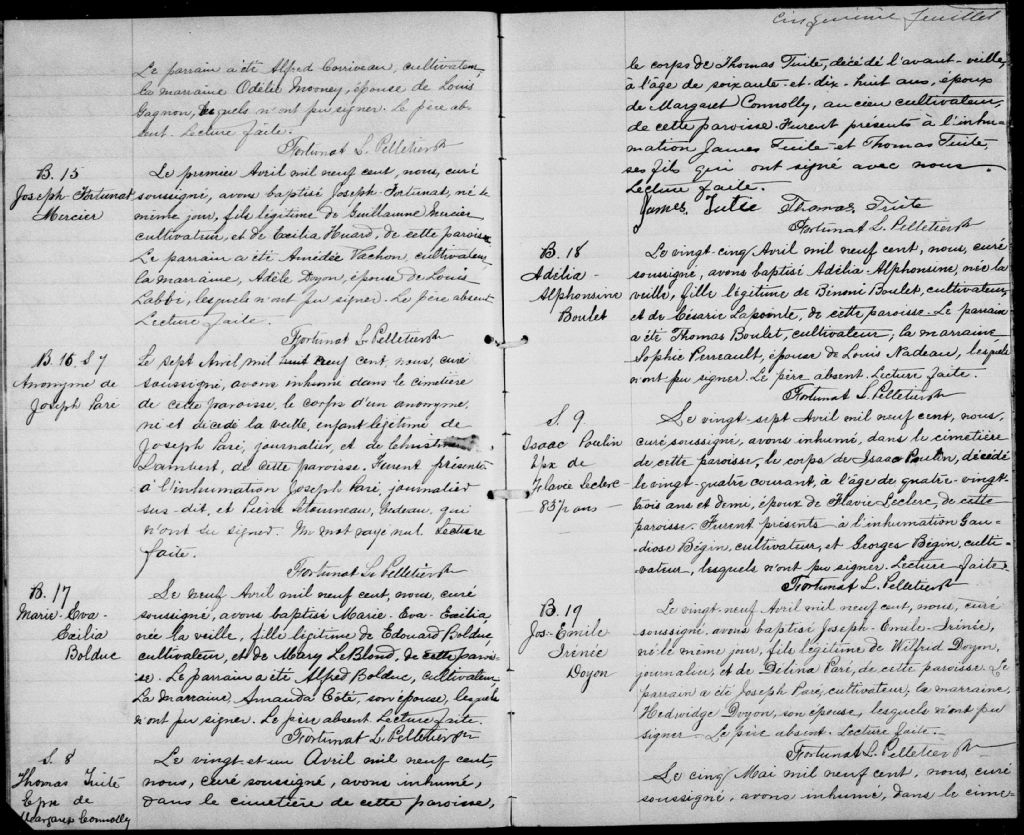 Le parrain a été Alfred Corriveau, cultivateur,
la marraine Odélie Mooney, épouse de Louis
Gagnon, lesquels n'ont pu signer. Le père ab-
sent. Lecture faite.
Fortunat L. Pelletier Ptr
B. 15
Joseph-Fortunat
Mercier
Le premier Avril mil neuf cent, nous, curé
soussigné, avons baptisé Joseph Fortunat, né le
même jour, fils légitime de Guillaume Mercier
cultivateur, et de Exilia Huard, de cette paroisse
Le parrain a été Amédée Vachon, cultivateur,
la marraine, Adèle Doyon, épouse de Louis
Labbé, lesquels n'ont pu signer. Le père absent
Lecture faite.
Fortunat L. Pelletier Ptr
B. 16. S 7
Anonyme de
Joseph Paré
Le sept Avril mil neuf cent, nous, curé
soussigné, avons inhumé dans le cimetière
de cette paroisse, le corps d'un anonyme,
né et décédé la veille, enfant légitime de
Joseph Paré, journalier, et de
Lambert, de cette paroisse. Furent présents
à l'inhumation Joseph Paré, journalier
sus-dit, et Pierre Létourneau, bedeau, qui
n'ont su signer. Un mot rayé nul. Lecture
faite.
Fortunat L. Pelletier Ptr
B. 17
Marie-Eva-
Exilia
Bolduc
Le neuf Avril mil neuf cent, nous, curé
soussigné, avons baptisé Marie-Eva-Exilia,
née la veille, fille légitime de Edouard Bolduc,
cultivateur, et de Mary LeBlond, de cette parois-
se. Le parrain a été Alfred Bolduc, cultivateur
La marraine, Amanda Coté, son épouse, lesquels
n'ont pu signer. Le père absent. Lecture faite.
Fortunat L. Pelletier Ptr
S. 8
Thomas Tuite
Epx de
Margaret Connolly
Le vingt-et-un Avril mil neuf cent,
nous, curé soussigné, avons inhumé,
dans le cimetière de cette paroisse,
Cinquième feuillet
le corps de Thomas Tuite, décédé l'avant-veille,
à l'âge de soixante-et-dix-huit ans, époux
de Margaret Connolly, ancien cultivateur,
de cette paroisse. Furent présents à l'inhu-
mation James Tuite et Thomas Tuite,
ses fils qui ont signé avec nous.
Lecture faite.
James Tutie Thomas Tuite
Fortunat L. Pelletier Ptr
B. 18
Adélia-
Alphonsine
Boulet
Le vingt-cinq Avril mil neuf cent, nous, curé
soussigné, avons baptisé Adélia-Alphonsine, née la
veille, fille légitime de Binoni Boulet, cultivateur,
et de Césarie Lapointe, de cette paroisse. Le parrain
a été Thomas Boulet, cultivateur; la marraine
Sophie Perreault, épouse de Louis Nadeau, lesquels
n'ont pu signer. Le père absent. Lecture faite.
Fortunat L. Pelletier Ptr
S. 9
Isaac Poulin
Epx de
Flavie Leclerc
83½ ans
Le vingt-sept Avril mil neuf cent, nous,
curé soussigné, avons inhumé, dans le cimetière
de cette paroisse, le corps de Isaac Poulin, décédé
le vingt-quatre courant, à l'âge de quatre-vingt-
trois ans et demi, époux de Flavie Leclerc, de cette
paroisse. Furent présents à l'inhumation Gau-
diose Bégin, cultivateur, et Georges Bégin, culti-
vateur, lesquels n'ont pu signer. Lecture faite.
Fortunat L. Pelletier Ptr
B. 19
Jos-Emile
Irénée
Doyon
Le vingt-neuf Avril mil neuf cent, nous, curé
soussigné, avons baptisé Joseph-Emile-Irénée,
né le même jour, fils légitime de Wilfrid Doyon,
journalier, et de Délina Paré, de cette paroisse. Le
parrain a été Joseph Paré, cultivateur, la marraine,
Hedwidge Doyon, son épouse, lesquels n'ont pu
signer. Le père absent. Lecture faite.
Fortunat L. Pelletier Ptr
Le cinq Mai mil neuf cent, nous, curé
soussigné, avons inhumé, dans le cime-